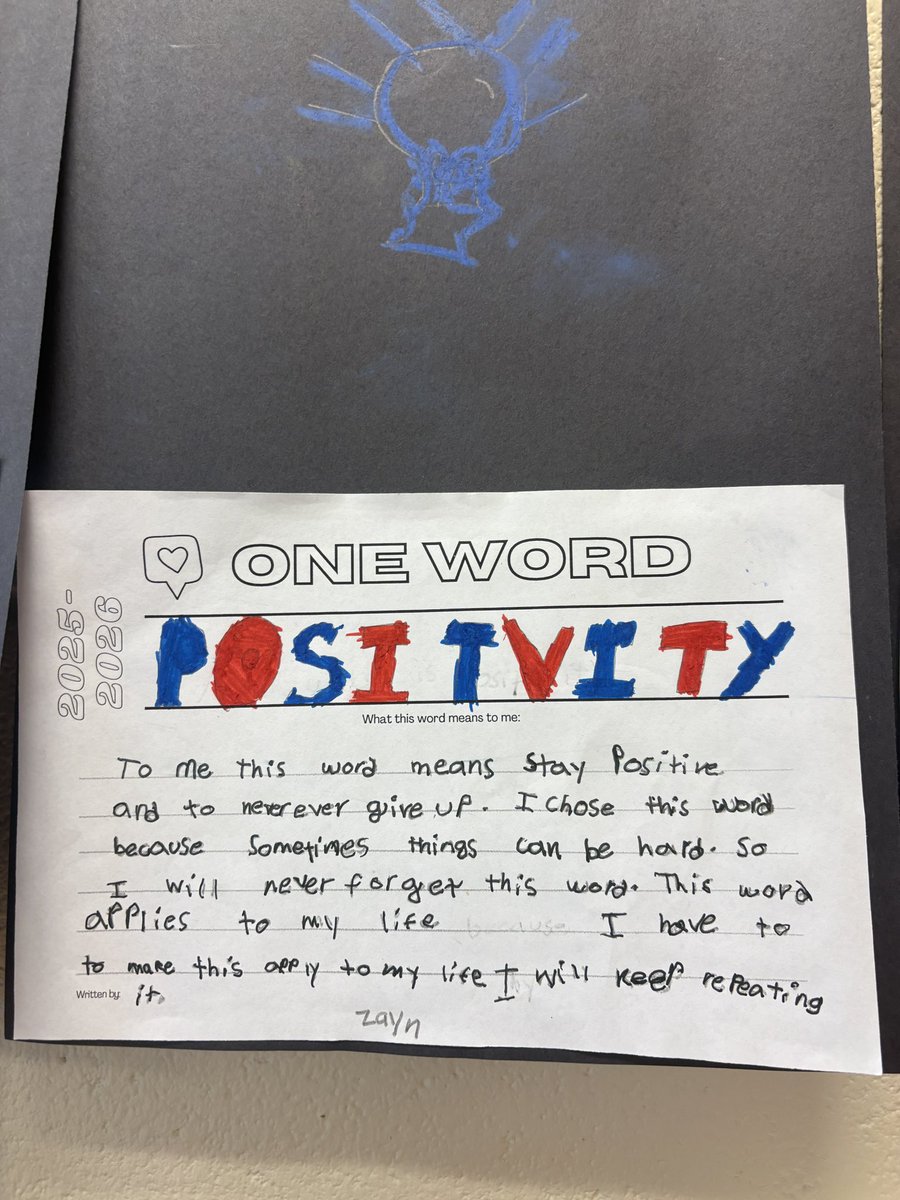 ONE WORD
2025-
2026
POSITVITY
What this word means to me:
To me this word means stay Positive
and to never ever give up. I chose this word
because sometimes things can be hard. So
I will never forget this word. This word
applies to my life I have to
to make this apply to my life I will keep repeating
Written by: it.
zayn